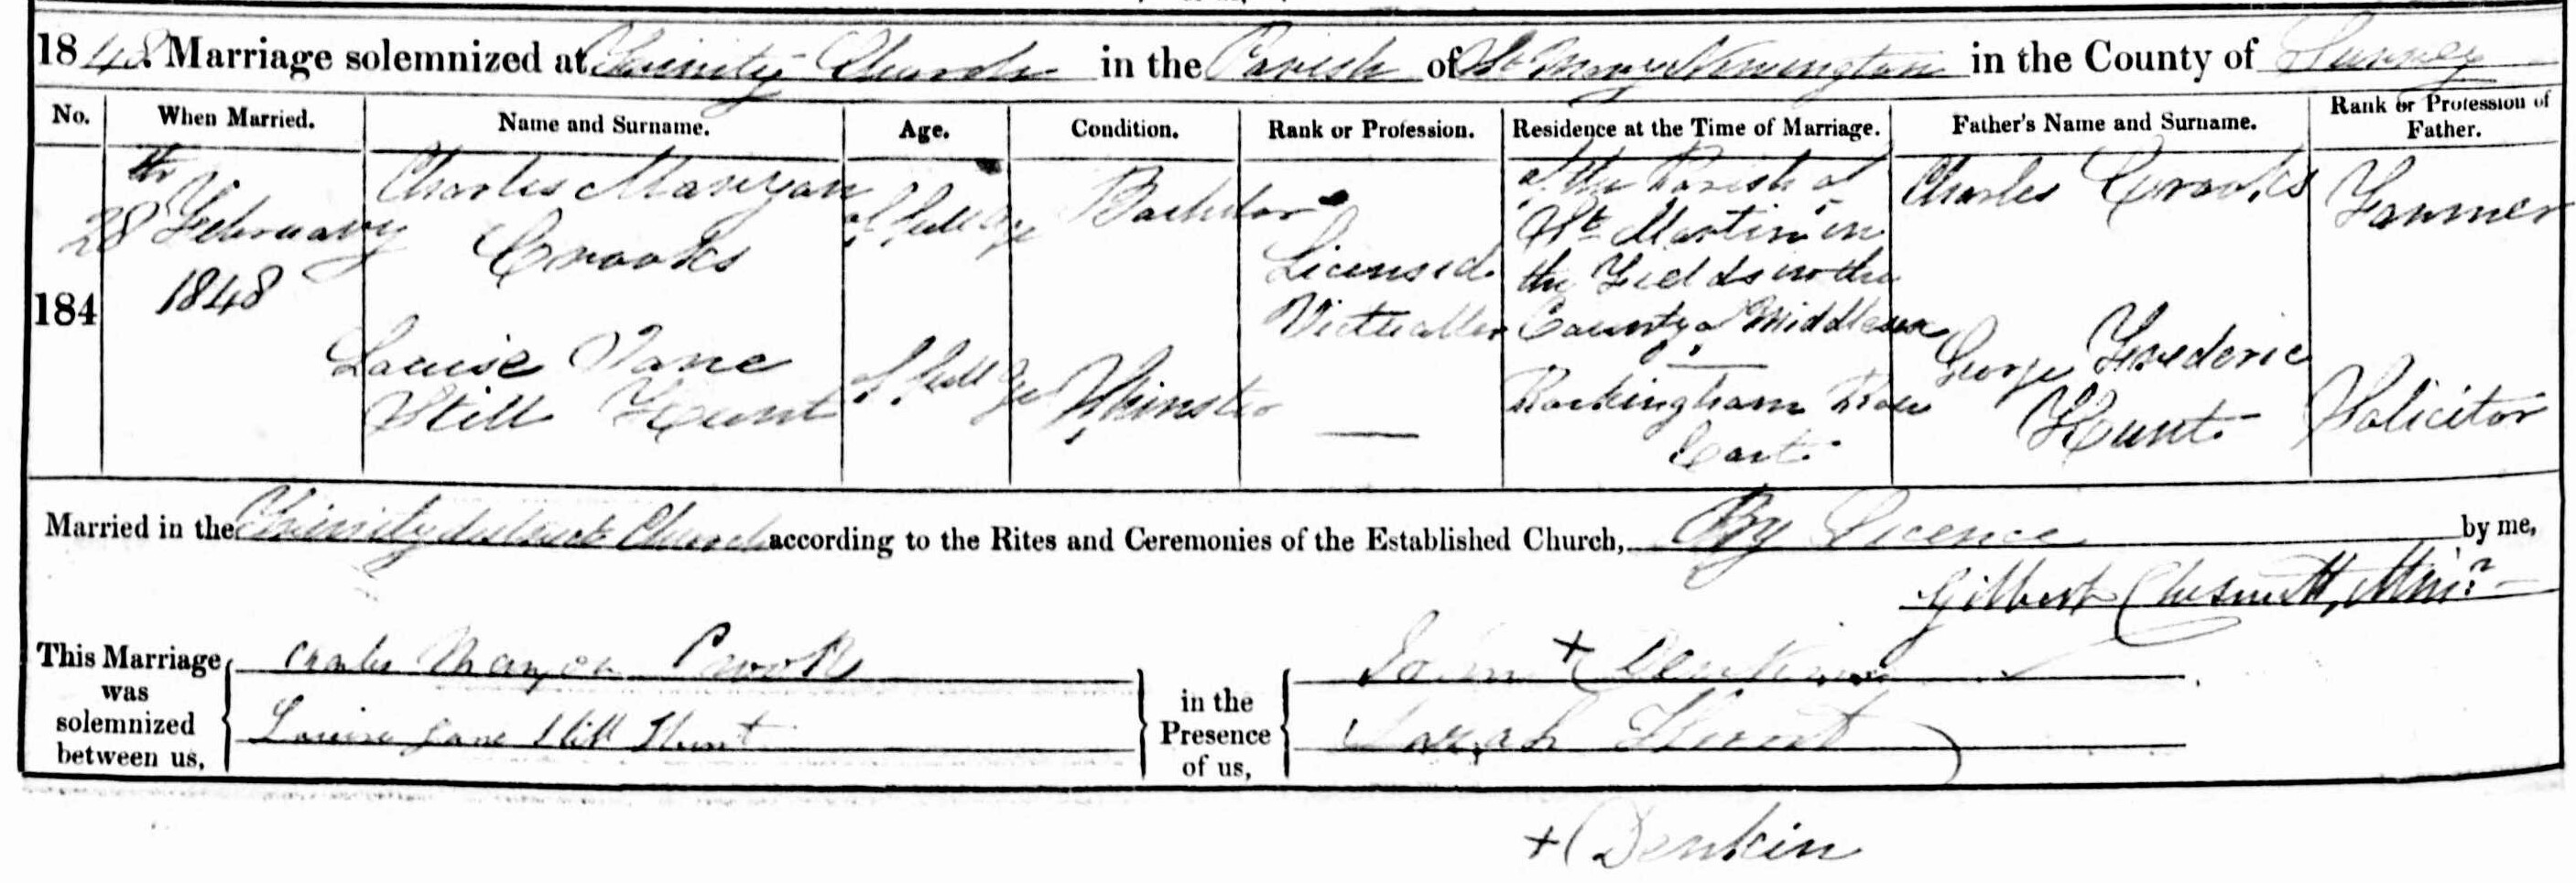 1848. Marriage solemnized at Trinity Church in the Parish of St Mary Newington in the County of Surrey
No. When Married. Name and Surname. Age. Condition. Rank or Profession. Residence at the Time of Marriage. Father's Name and Surname. Rank or Profession of Father.
184
28th February
1848
Charles
Crooks
of full age
Bachelor
Licensed
Victualler
of the Parish of
St Martin in
the Fields in the
County of Middlesex
Charles Crooks
Farmer
Louise Jane
Still Hunt
of full age
Spinster
—
Rockingham Row
East.
George Frederic
Hunt.
Solicitor
Married in the Trinity district Church according to the Rites and Ceremonies of the Established Church, By Licence by me,
Gilbert Minr
This Marriage was solemnized between us,
Charles Crooks
Louise Jane Still Hunt
in the Presence of us,
+ Denkin
Sarah Hunt
+ (Denkin